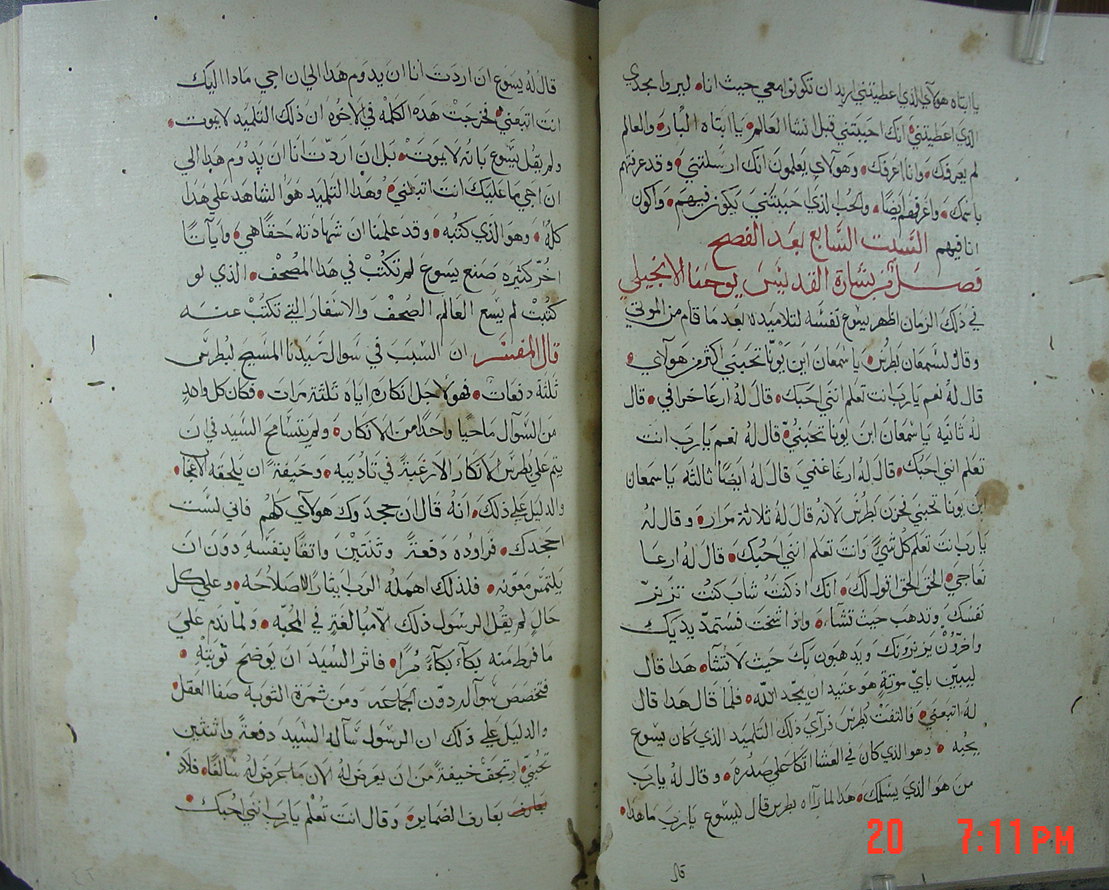 يا ابتاه هولاي الذي اعطيتني اريد ان تكونوا معي حيث انا، ليروا مجدي
الذي اعطيتني، انك احببتني قبل انشا العالم، يا ابتاه البار، والعالم
لم يعرفك، وانا اعرفك، وهولاي يعلمون انك ارسلتني، وقد عرفتهم
باسمك، واعرفهم ايضًا، والحب الذي احببتني يكون فيهم، واكون
انا فيهم السبت السابع بعد الفصح
فصل من بشارة القديس يوحنا الانجيلي
في ذلك الزمان اظهر يسوع نفسه لتلاميذه بعد ما قام من الموتي
وقال لسمعان بطرس، يا سمعان ابن يونا تحبني اكثر من هولاي،
قال له نعم يا رب انت تعلم انني احبك، قال له ارعا خرافي، قال
له ثانيه يا سمعان ابن يونا تحبني، قال له نعم يا رب انت
تعلم انني احبك، قال له ارعا غنمي قال له ايضًا ثالثه يا سمعان
ابن يونا تحبني فحزن بطرس لانه قال له ثلاثة مرار، وقال له
يا رب انت تعلم كل شيً وانت تعلم انني احبك، قال له ارعا
نعاجي، الحق الحق اقول لك، انك اذ كنت شاب كنت تزنر
نفسك وتذهب حيث تشآء، واذا شخت فستمد يديك
واخرون يزنرونك ويذهبون بك حيث لا تشآ، هذا قال
ليبين باي موتةٍ هو عتيد ان يمجد الله، فلما قال هذا قال
له اتبعني، فالتفت بطرس فرآي ذلك التلميذ الذي كان يسوع
يحبه، وهو الذي كان في العشا اتكا علي صدره، وقال له يا رب
من هو الذي يسلمك، هذا لما رآاه بطرس قال ليسوع يا رب ما هذا،
قال
قال له يسوع ان اردت انا ان يدوم هذا الي ان اجي ماذا اليك
انت اتبعني، فخرجت هذه الكلمه في الاخوه ان ذلك التلميذ لا يموت،
ولم يقل يسوع بانه لا يموت، بل ان اردت انا ان يدوم هذا الي
ان اجي ما عليك انت اتبعني، وهذا التلميذ هوا الشاهد علي هذا
كله، وهو الذي كتبه، وقد علمنا ان شهادته حقًا هي، وآيآتًا
اخر كثيره صنع يسوع لم تكتب في هذا المصحف، الذي لو
كتبت لم يسع العالم الصحف والاسفار التي تكتب عنه
قال المفسر ان السبب في سوال سيدنا المسيح لبطرس
ثلثة دفعات، فهو لاجل نكاره اياه ثلثة مرات، فكان كل واحدٍ
من السوآل ماحيًا واحدًا من الانكار، ولم يتسامح السيد في ان
يتم علي بطرس الانكار الا رغبةً في تاديبه، وخيفةً ان يلحقه الاعجا،
والدليل علي ذلك، انهُ قال ان جحدوك هولاي كلهم فاني لست
اجحدك، فراوده دفعةً وثنتين واثقًا بنفسه دون ان
يلتمس معونه، فلذلك اهمله الرب ايثارًا لاصلاحه، وعلي كل
حالٍ لم يقل الرسول ذلك الا في المحبه، ولما ندم علي
ما فرط منه بكآء بكآءً مرًا، فاثر السيد ان يوضح توبته،
فخصص سوآله دون الجماعه ومن ثمرة التوبة صفا العقل
والدليل علي ذلك ان الرسول سآله السيد دفعةً واثنتين
تحبني، ارتجف خيفةً من ان يعرض له الان ما عرض له سالفًا، فلاذ
بعارف الضماير، وقال انت تعلم يا رب انني احبك،
20 7:11PM